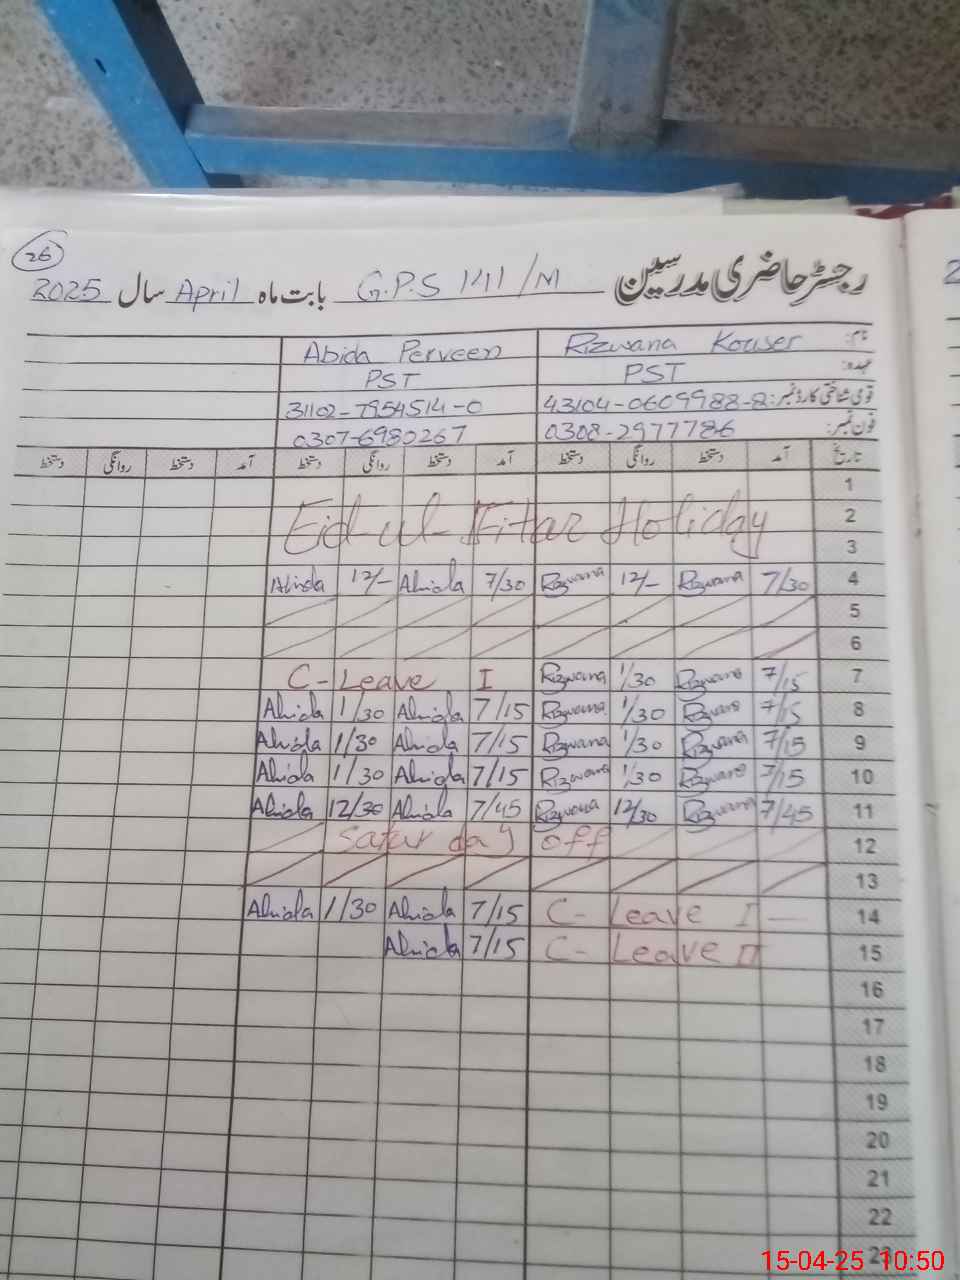 26
رجسٹر حاضری مدرسین G.P.S 1411/M بابت ماہ April سال 2025
نام: Rizwana Kouser Abida Perveen
عہدہ: PST PST
قومی شناختی کارڈ نمبر: 43104-0609988-8 31102-7954514-0
فون نمبر: 0308-2977786 0307-6980267
تاریخ آمد دستخط روانگی دستخط آمد دستخط روانگی دستخط آمد دستخط روانگی دستخط
1
2 Eid-ul-Fitar Holiday
3
4 7/30 Rizwana 12/- Rizwana 7/30 Abida 12/- Abida
5
6
7 7/15 Rizwana 1/30 Rizwana C-Leave I
8 7/15 Rizwana 1/30 Rizwana 7/15 Abida 1/30 Abida
9 7/15 Rizwana 1/30 Rizwana 7/15 Abida 1/30 Abida
10 7/15 Rizwana 1/30 Rizwana 7/15 Abida 1/30 Abida
11 7/45 Rizwana 12/30 Rizwana 7/45 Abida 12/30 Abida
12 Saturday off
13
14 C-Leave I 7/15 Abida 1/30 Abida
15 C-Leave II 7/15 Abida
16
17
18
19
20
21
22
23
15-04-25 10:50